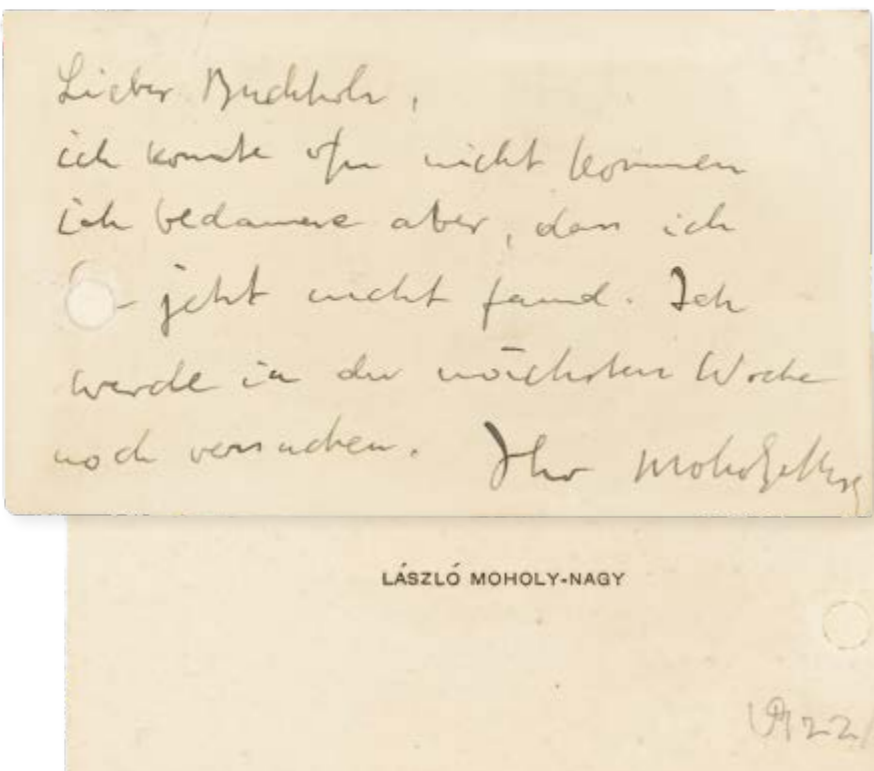 Lieber Buchholz,
ich konnte nicht kommen
ich bedauere aber, dass ich
jetzt nicht fand. Ich
werde in der nächsten Woche
noch versuchen. Ihr Moholy-Nagy
LÁSZLÓ MOHOLY-NAGY
22